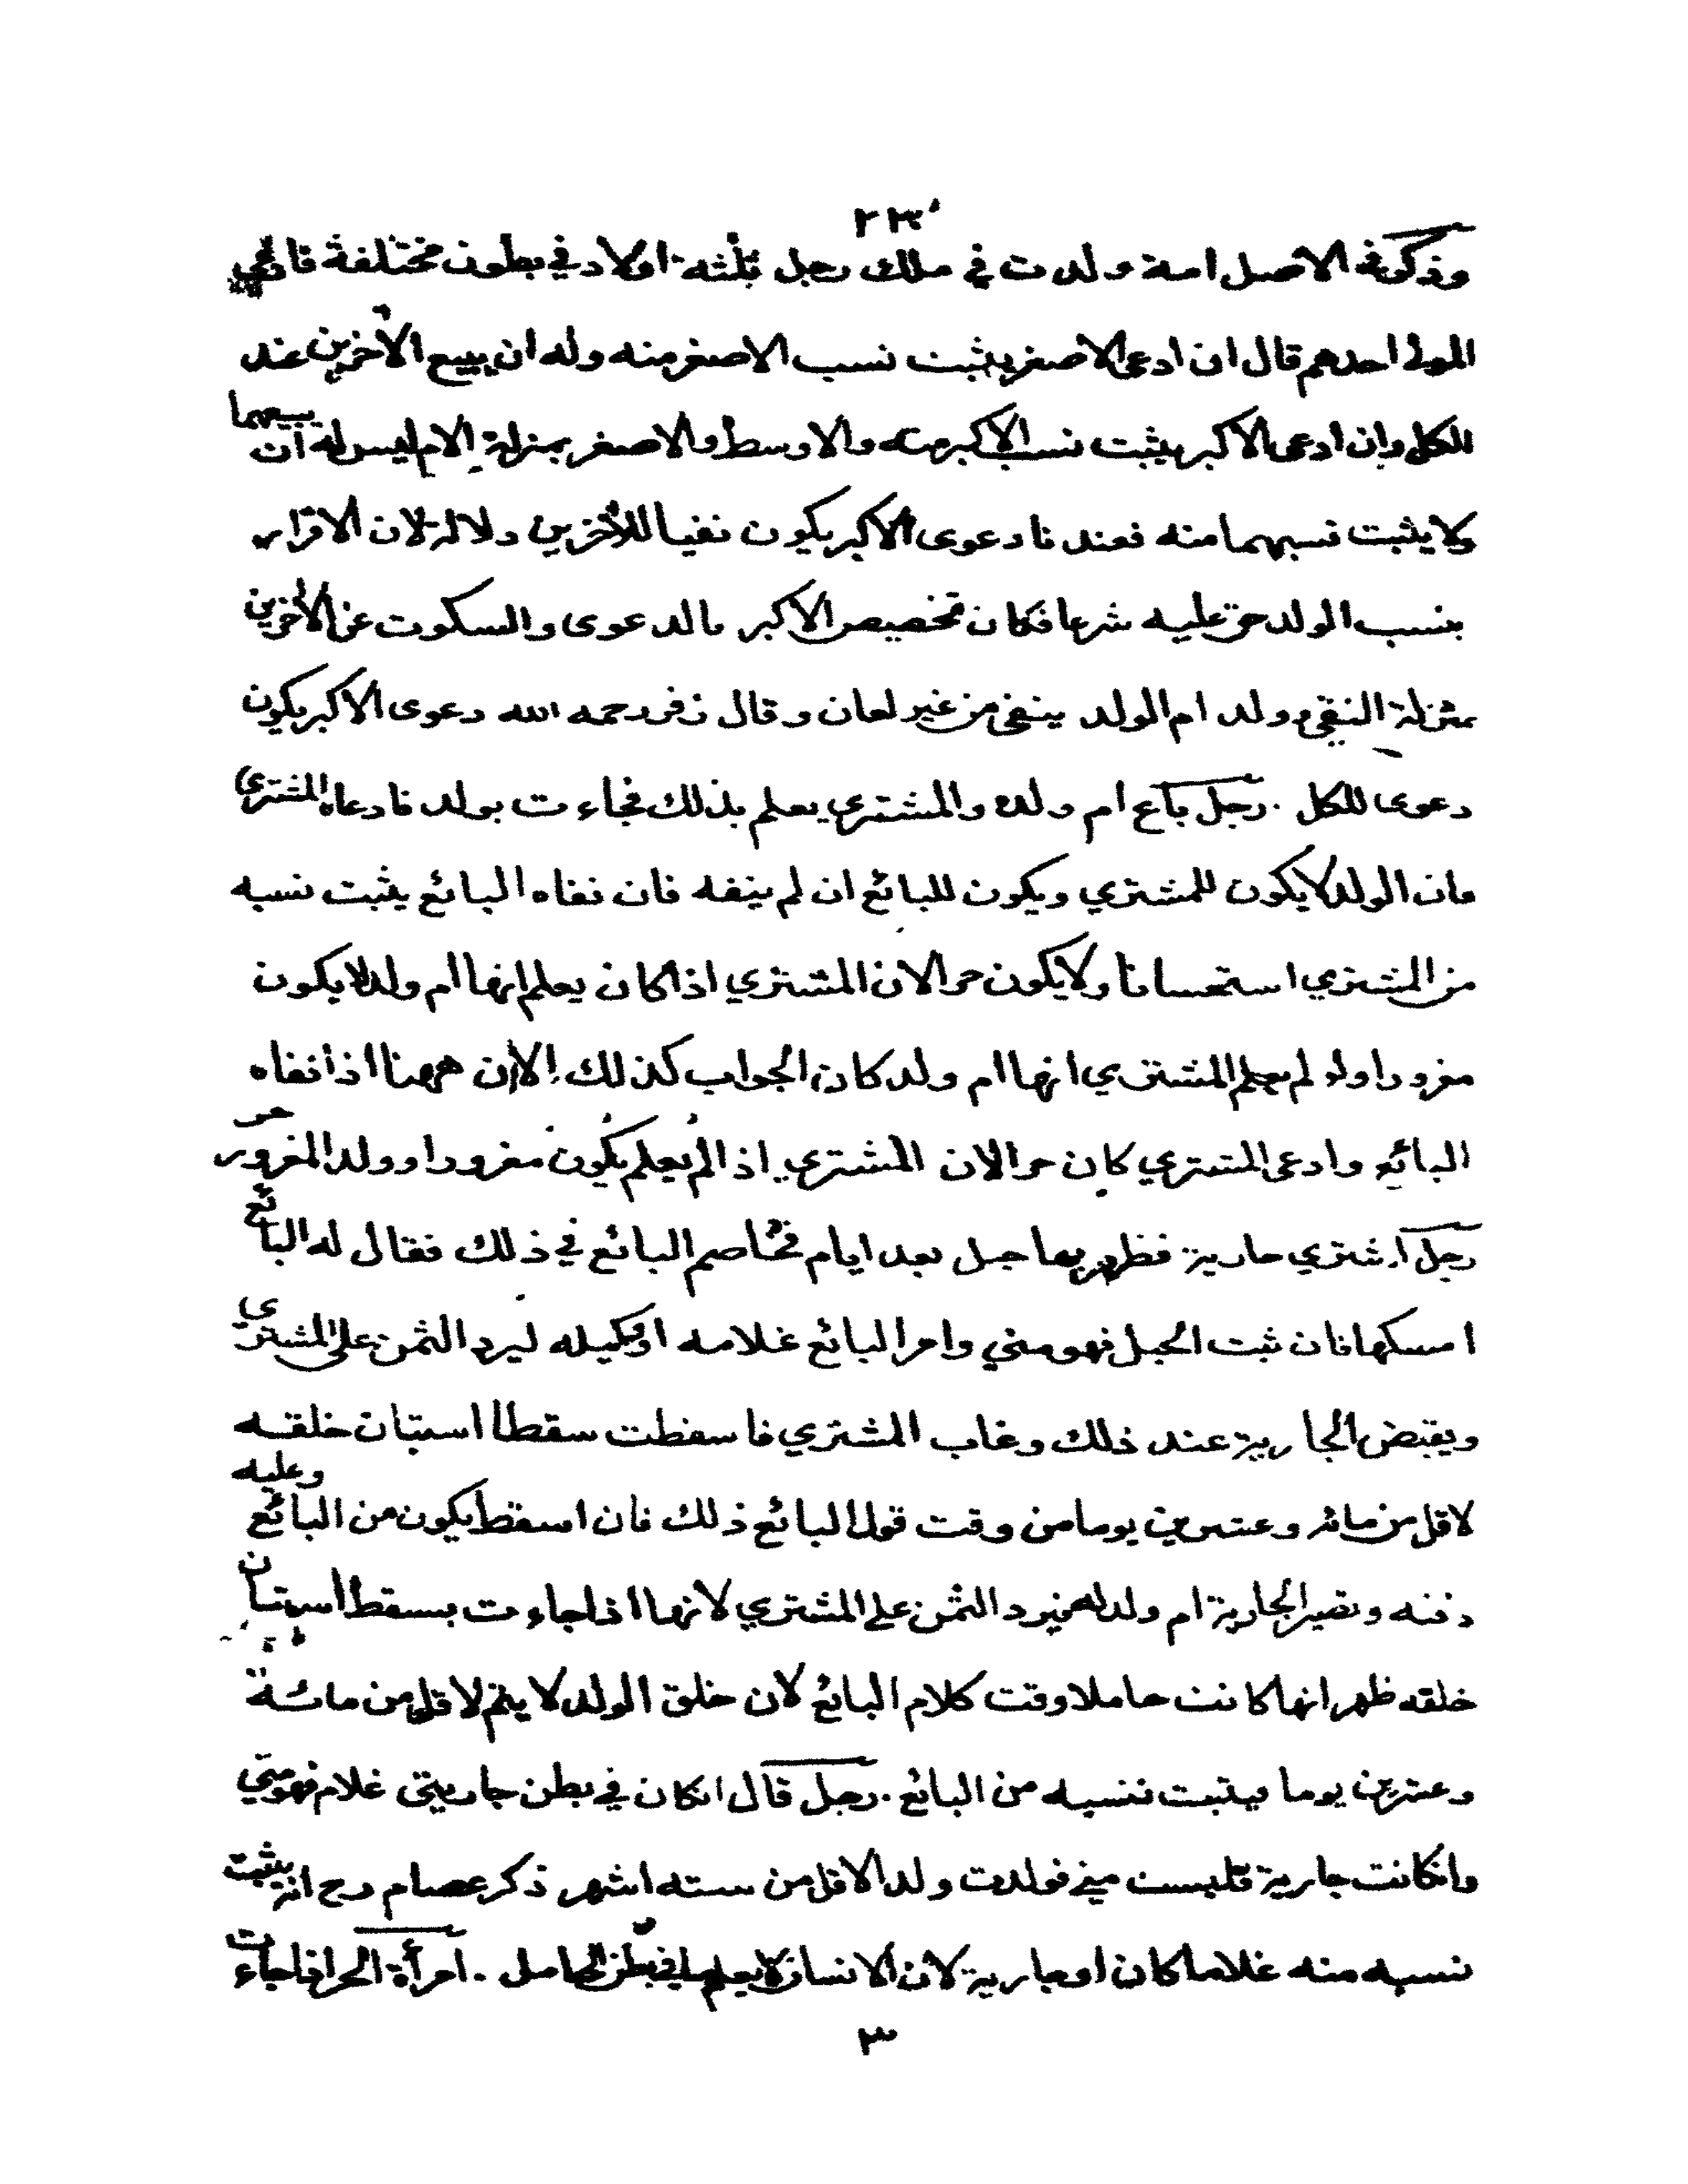 ٢٣٠
وذكر في الاصل امة ولدت في ملك رجل ثلثة اولاد في بطون مختلفة فادعى
المولى احدهم قال ان ادعى الاصغر يثبت نسب الاصغر منه وله ان يبيع الآخرين عند
الكل وان ادعى الاكبر يثبت نسب الاكبر منه والاوسط والاصغر بمنزلة الام ليس له ان يبيعهما
ولا يثبت نسبهما منه فعندنا دعوى الاكبر يكون نفيا للآخرين دلالة لان الاقرار
بنسب الولد حق عليه شرعا فكان تخصيص الاكبر بالدعوى والسكوت عن الآخرين
بمنزلة النفي وولد ام الولد ينفى من غير لعان وقال زفر رحمه الله دعوى الاكبر يكون
دعوى للكل . رجل باع ام ولده والمشتري يعلم بذلك فجاءت بولد فادعاه المشتري
فان الولد لا يكون للمشتري ويكون للبائع ان لم ينفه فان نفاه البائع يثبت نسبه
من المشتري استحسانا ولا يكون حرا لان المشتري اذا كان يعلم انها ام ولد لا يكون
مغرورا ولو لم يعلم المشتري انها ام ولد كان الجواب كذلك الا ان ههنا اذا نفاه
البائع وادعى المشتري كان حرا لان المشتري اذا لم يعلم يكون مغرورا وولد المغرور حر
رجل اشترى جارية فظهر بها حبل بعد ايام فخاصم البائع في ذلك فقال له البائع
امسكها فان ثبت الحبل فهو مني وامر البائع غلامه او وكيله ليرد الثمن على المشتري
ويقبض الجارية عند ذلك وغاب المشتري فاسقطت سقطا استبان خلقه
لاقل من مائة وعشرين يوما من وقت قول البائع ذلك فان السقط يكون من البائع وعليه
دفنه وتصير الجارية ام ولد له فيرد الثمن على المشتري لانها اذا جاءت بسقط استبان
خلقه ظهر انها كانت حاملا وقت كلام البائع لان خلق الولد لا يتم لاقل من مائة
وعشرين يوما فيثبت نسبه من البائع . رجل قال ان كان في بطن جاريتي غلام فهو مني
وانكانت جارية فليست مني فولدت ولدا لاقل من ستة اشهر ذكر عصام رح انه يثبت
نسبه منه غلاما كان او جارية لان الانسان لا يعلم ما في بطن الحامل . امرأة الحر اذا جاءت
٣